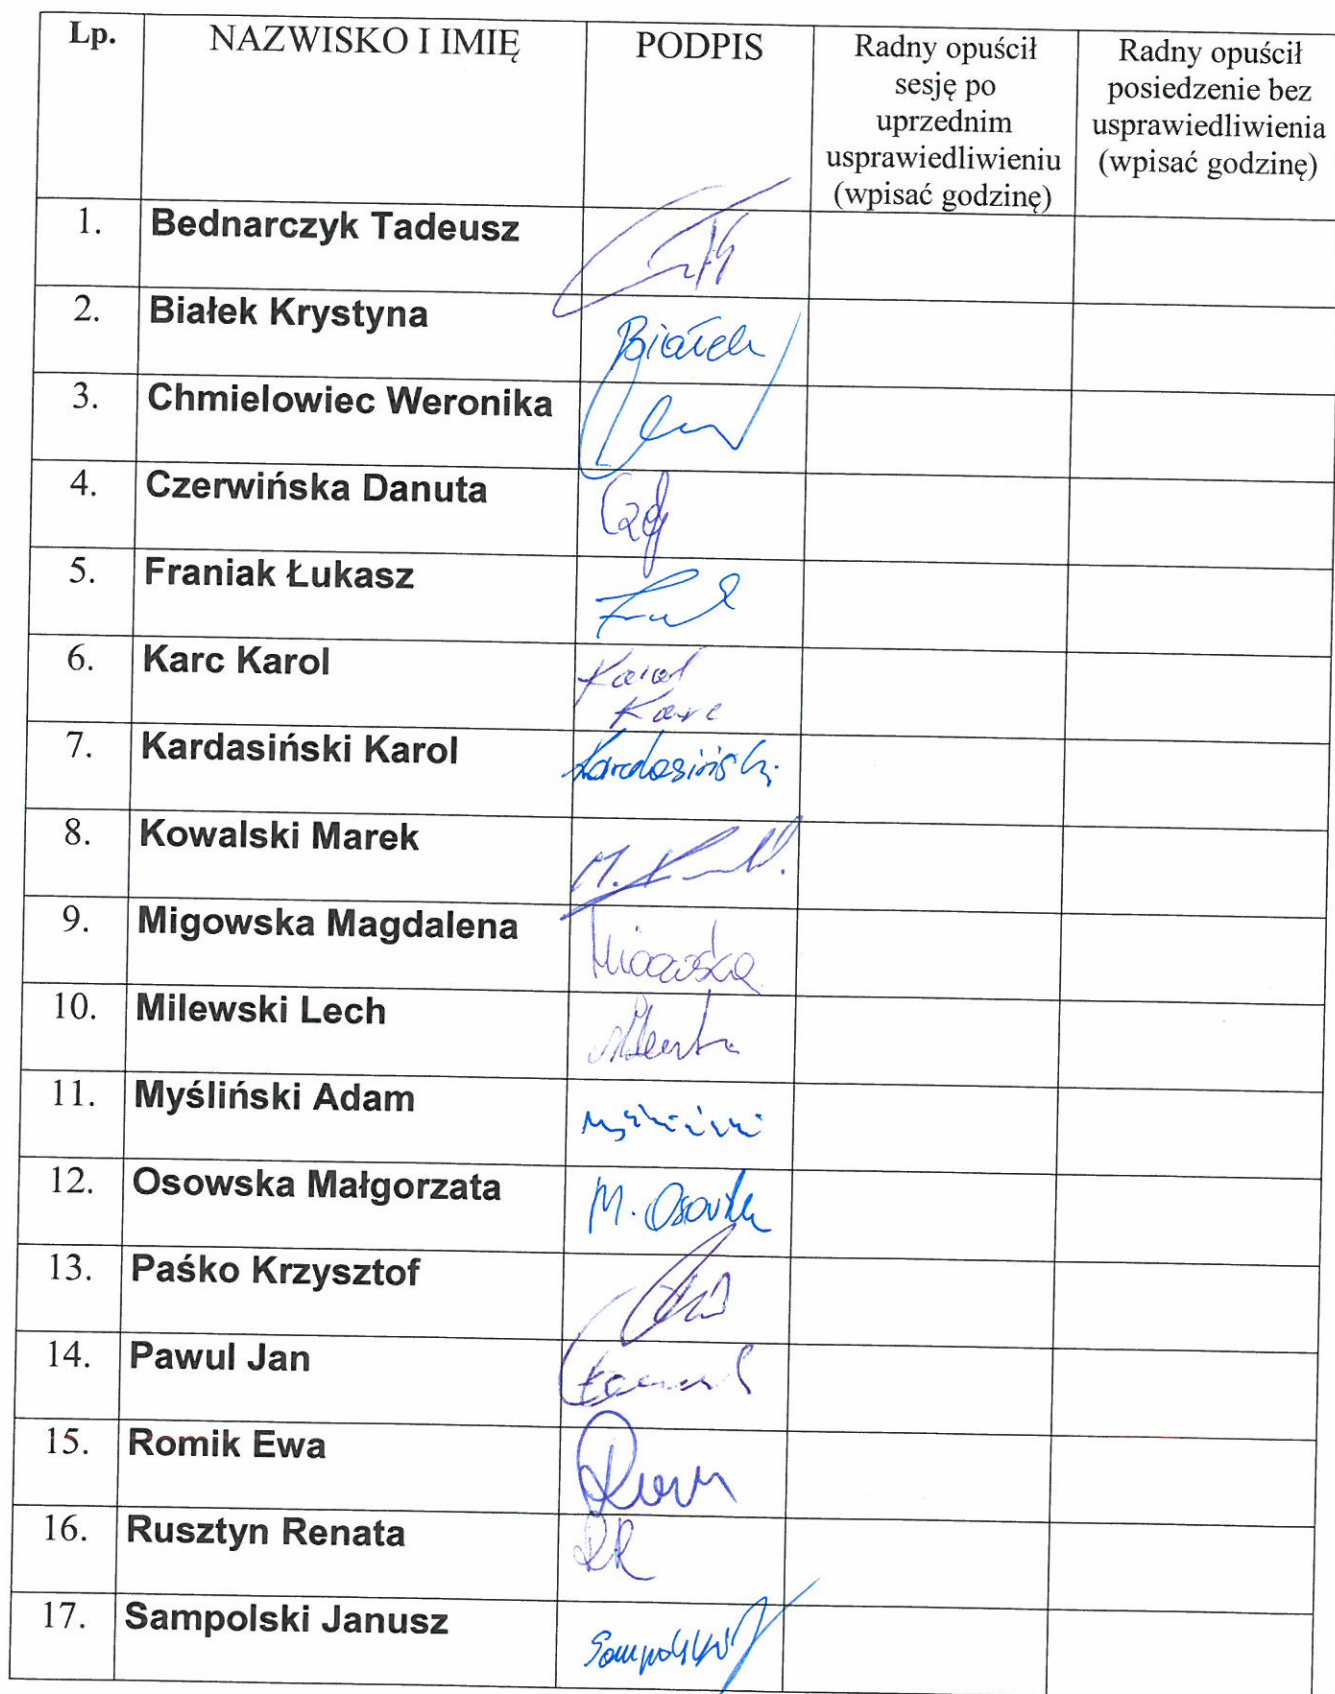 Lp.
NAZWISKO I IMIĘ
PODPIS
Radny opuścił
sesję po
uprzednim
usprawiedliwieniu
(wpisać godzinę)
Radny opuścił
posiedzenie bez
usprawiedliwienia
(wpisać godzinę)
1. Bednarczyk Tadeusz
2. Białek Krystyna Białek
3. Chmielowiec Weronika
4. Czerwińska Danuta
5. Franiak Łukasz
6. Karc Karol Karol
Karc
7. Kardasiński Karol Kardasiński
8. Kowalski Marek M.
9. Migowska Magdalena Migowska
10. Milewski Lech
11. Myśliński Adam Myśliński
12. Osowska Małgorzata M. Osowska
13. Paśko Krzysztof
14. Pawul Jan
15. Romik Ewa
16. Rusztyn Renata RR
17. Sampolski Janusz Sampolski